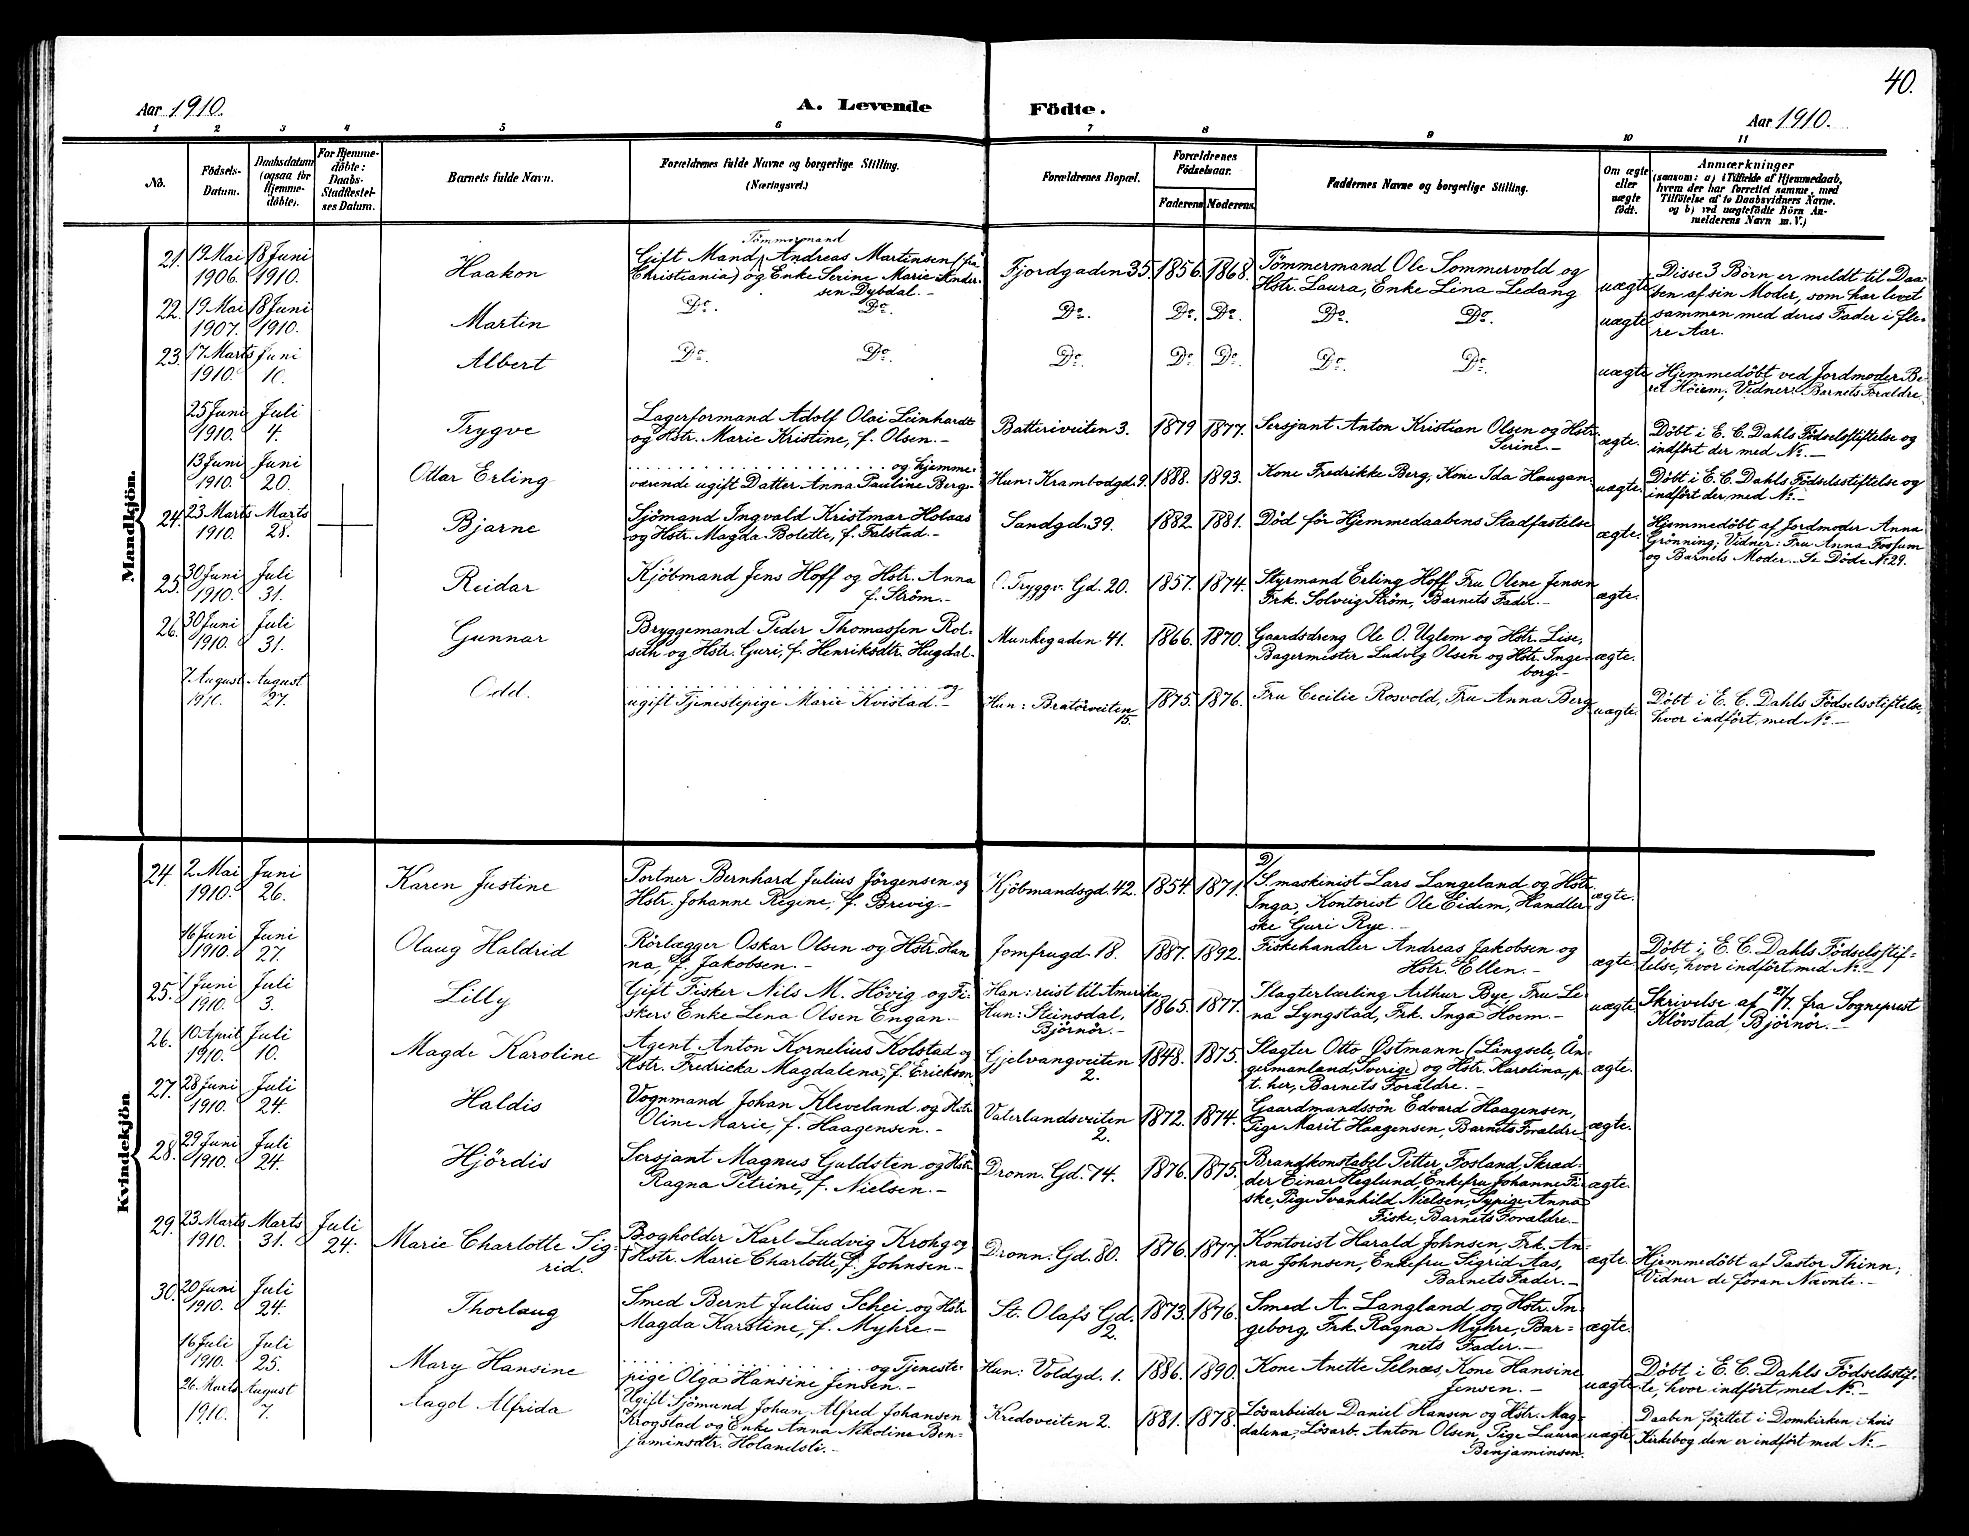 40.
Aar 1910. A. Levende Födte. Aar 1910.
1 2 3 4 5 6 7 8 9 10 11
No. Födsels-Datum. Daabsdatum (ogsaa for Hjemmedöbte). For Hjemmedöbte: Daabs-Stadfæstelses Datum. Barnets fulde Navn. Forældrenes fulde Navne og borgerlige Stilling. (Næringsvei.) Forældrenes Bopæl. Forældrenes Födselsaar. Faderens. Moderens. Faddernes Navne og borgerlige Stilling. Om ægte eller uægte födt. Anmærkninger (saasom: a) i Tilfælde af Hjemmedaab, hvem der har forrettet samme, med Tilföielse af to Daabsvidners Navne. og b) ved uægtefödte Börn Anmelderens Navn m. V.)
Mandkjön.
21. 19 Mai 1906. 18 Juni 1910. Haakon Gift Mand, Tömmermand Andreas Martinsen (fra Christiania) og Enke Serine Marie Andersen Dybdal.- Fjordgaden 35. 1856. 1868. Tömmermand Ole Sommervold og Hstr. Laura, Enke Lina Ledang uægte Disse 3 Börn er meldt til Daaben af sin Moder, som har levet sammen med deres Fader i flere Aar.
22. 19 Mai 1907. 18 Juni 1910. Martin Do. Do. Do. Do. Do. Do. Do. uægte
23. 17 Marts 1910. Juni 10. Albert Do. Do. Do. Do. Do. Do. Do. uægte Hjemmedöbt ved Jordmoder Beret Höiem; Vidner: Barnets Forældre.
25 Juni 1910. Juli 4. Trygve Lagerformand Adolf Olai Leinhardt og Hstr. Marie Kristine, f. Olsen.- Batteriveiten 3. 1879 1877. Sersjant Anton Kristian Olsen og Hstr. Serine.- ægte. Döbt i E. C. Dahls Födselsstiftelse og indfört der med No.-
13 Juni 1910. Juni 20. Ottar Erling ..... og hjemmeværende ugift Datter Anna Pauline Berg.- Hun: Krambodgd. 9. 1888. 1893. Kone Fredrikke Berg, Kone Ida Haugan. uægte. Döbt i E. C. Dahls Födselsstiftelse og indfört der med No.-
24. 23 Marts 1910. Marts 28. Bjarne Sjömand Ingvald Kristmar Holaas og Hstr. Magda Bolette, f. Falstad.- Sandgd. 39. 1882. 1881. Död för Hjemmedaabens Stadfæstelse ægte. Hjemmedöbt af Jordmoder Anna Grönning; Vidner: Fru Anna Fossum og Barnets Moder. Se Döde No 29.
25. 30 Juni 1910. Juli 31. Reidar Kjöbmand Jens Hoff og Hstr. Anna f. Ström.- O. Tryggv. Gd. 20. 1857. 1874. Styrmand Erling Hoff Fru Olene Jensen Frk. Solveig Ström, Barnets Fader.- ægte.
26. 30 Juni 1910. Juli 31. Gunnar Bryggemand Peder Thomassen Rolseth og Hstr. Guri, f. Henriksdtr. Hugdal.- Munkegaden 41. 1866. 1870. Gaardsdreng Ole O. Uglem og Hstr. Lise, Bagermester Ludvig Olsen og Hstr. Ingeborg.- ægte.
7 August 1910. August 27. Odd. ..... og ugift Tjenestepige Marie Kvistad.- Hun: Bratörveiten 15. 1875. 1876. Fru Cecilie Rosvold, Fru Anna Berg. uægte. Döbt i E. C. Dahls Födselsstiftelse, hvor indfört med No.-
Kvindekjön
24. 2 Mai 1910. Juni 26. Karen Justine Portner Bernhard Julius Jörgensen og Hstr. Johanne Regine, f. Brevig.- Kjöbmandsgd. 42. 1854. 1871. D/S. maskinist Lars Langeland og Hstr. Inga, Kontorist Ole Eidem, Handlerske Guri Rye.- ægte.
16 Juni 1910. Juni 27. Olaug Haldrid Rörlægger Oskar Olsen og Hstr. Hanna, f. Jakobsen.- Jomfrugd. 18. 1887. 1892. Fiskehandler Andreas Jakobsen og Hstr. Ellen.- ægte Döbt i E. C. Dahls Födselsstiftelse, hvor indfört med No.-
25. 7 Juni 1910. Juli 3. Lilly Gift Fisker Nils M. Hövig og Fiskers Enke Lena Olsen Engan.- Han: reist til Amerika Hun: Steinsdal, Björnör.- 1865. 1877. Slagterlærling Arthur Bye, Fru Lena Lyngstad, Frk. Inga Hoem.- uægte Skrivelse af 27/7 fra Sogneprest Klövstad, Björnör.-
26. 10 April 1910. Juli 10. Magde Karoline Agent Anton Kornelius Kolstad og Hstr. Fredricka Magdalena, f. Erickson Gjelvangveiten 2. 1848. 1875. Slagter Otto Østmann (Långsele, Ångermanland, Sverige) og Hstr. Karolina, p. t. her, Barnets Forældre.- ægte.
27. 28 Juni 1910. Juli 24. Haldis Vognmand Johan Kleveland og Hstr. Oline Marie, f. Haagensen.- Vaterlandsveiten 2. 1872. 1874. Gaardmandssön Edvard Haagensen, Pige Marit Haagensen, Barnets Forældre. ægte.
28. 29 Juni 1910. Juli 24. Hjördis Sersjant Magnus Guldsten og Hstr. Ragna Petrine, f. Nielsen.- Dronn. Gd. 74. 1876. 1875. Brandkonstabel Petter Fosland, Skrædder Einar Heglund, Enkefru Johanne Fiske, Pige Svanhild Nielsen, Sypige Anna Fiske, Barnets Forældre.- ægte.
29. 23 Marts 1910. Marts 31. Juli 24. Marie Charlotte Sigrid. Bogholder Karl Ludvig Krohg og Hstr. Marie Charlotte, f. Johnsen.- Dronn. Gd. 80. 1876. 1877. Kontorist Harald Johnsen, Frk. Anna Johnsen, Enkefru Sigrid Aas, Barnets Fader.- ægte. Hjemmedöbt af Pastor Thinn; Vidner de foran Nævnte.-
30. 20 Juni 1910. Juli 24. Thorlaug Smed Bernt Julius Schei og Hstr. Magda Karstine, f. Myhre.- St. Olafs Gd. 2. 1873. 1876. Smed A. Langland og Hstr. Ingeborg, Frk. Ragna Myhre, Barnets Fader.- ægte.
16 Juli 1910. Juli 25. Mary Hansine ..... og Tjenestepige Olga Hansine Jensen.- Hun: Voldgd. 1. 1886. 1890. Kone Anette Selnæs, Kone Hansine Jensen.- uægte Döbt i E. C. Dahls Födselsstif-te, hvor indfört, med No.-
26. Marts 1910. August 7. Aagot Alfrida Ugift Sjömand Johan Alfred Johansen Krogstad og Enke Anna Nikoline Benjaminsdtr. Holandsli.- Kredoveiten 2. 1881. 1878. Lösarbeider Daniel Hansen og Hstr. Magdalena, Lösarb. Anton Olsen, Pige Laura Benjaminsen. uægte Daaben forettet i Domkirken i hvis Kirkebog den er indfört med No.-